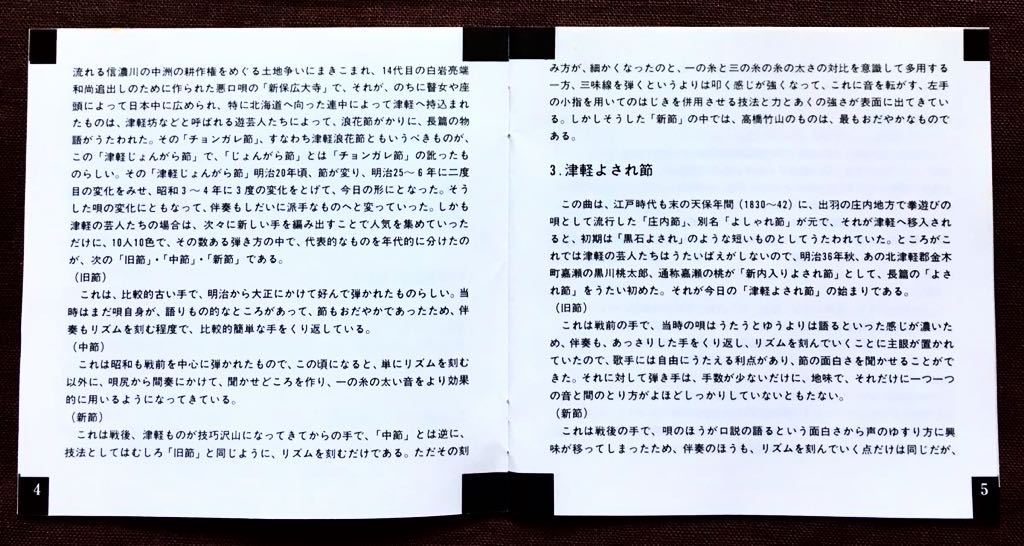 流れる信濃川の中洲の耕作権をめぐる土地争いにまきこまれ、14代目の白岩亮端
和尚追出しのために作られた悪口唄の「新保広大寺」で、それが、のちに瞽女や座
頭によって日本中に広められ、特に北海道へ向った連中によって津軽へ持込まれ
たものは、津軽坊などと呼ばれる遊芸人たちによって、浪花節がかりに、長篇の物
語がうたわれた。その「チョンガレ節」、すなわち津軽浪花節ともいうべきものが、
この「津軽じょんがら節」で、「じょんがら節」とは「チョンガレ節」の訛ったも
のらしい。その「津軽じょんがら節」明治20年頃、節が変り、明治25〜6年に二度
目の変化をみせ、昭和3〜4年に3度の変化をとげて、今日の形になった。そう
した唄の変化にともなって、伴奏もしだいに派手なものへと変っていった。しかも
津軽の芸人たちの場合は、次々に新しい手を編み出すことで人気を集めていった
だけに、10人10色で、その数ある弾き方の中で、代表的なものを年代的に分けたの
が、次の「旧節」・「中節」・「新節」である。
(旧節)
これは、比較的古い手で、明治から大正にかけて好んで弾かれたものらしい。当
時はまだ唄自身が、語りもの的なところがあって、節もおだやかであったため、伴
奏もリズムを刻む程度で、比較的簡単な手をくり返している。
(中節)
これは昭和も戦前を中心に弾かれたもので、この頃になると、単にリズムを刻む
以外に、唄尻から間奏にかけて、聞かせどころを作り、一の糸の太い音をより効果
的に用いるようになってきている。
(新節)
これは戦後、津軽ものが技巧沢山になってきてからの手で、「中節」とは逆に、
技法としてはむしろ「旧節」と同じように、リズムを刻むだけである。ただその刻
4
み方が、細かくなったのと、一の糸と三の糸の糸の太さの対比を意識して多用する
一方、三味線を弾くというよりは叩く感じが強くなって、これに音を転がす、左手
の小指を用いてのはじきを併用させる技法と力とあくの強さが表面に出てきてい
る。しかしそうした「新節」の中では、高橋竹山のものは、最もおだやかなもので
ある。
3.津軽よされ節
この曲は、江戸時代も末の天保年間(1830〜42)に、出羽の庄内地方で拳遊びの
唄として流行した「庄内節」、別名「よしゃれ節」が元で、それが津軽へ移入され
ると、初期は「黒石よされ」のような短いものとしてうたわれていた。ところがこ
れでは津軽の芸人たちはうたいばえがしないので、明治36年秋、あの北津軽郡金木
町嘉瀬の黒川桃太郎、通称嘉瀬の桃が「新内入りよされ節」として、長篇の「よさ
れ節」をうたい初めた。それが今日の「津軽よされ節」の始まりである。
(旧節)
これは戦前の手で、当時の唄はうたうとゆうよりは語るといった感じが濃いた
め、伴奏も、あっさりした手をくり返し、リズムを刻んでいくことに主眼が置かれ
ていたので、歌手には自由にうたえる利点があり、節の面白さを聞かせることがで
きた。それに対して弾き手は、手数が少ないだけに、地味で、それだけに一つ一つ
の音と間のとり方がよほどしっかりしていないともたない。
(新節)
これは戦後の手で、唄のほうが口説の語るという面白さから声のゆすり方に興
味が移ってしまったため、伴奏のほうも、リズムを刻んでいく点だけは同じだが、
5